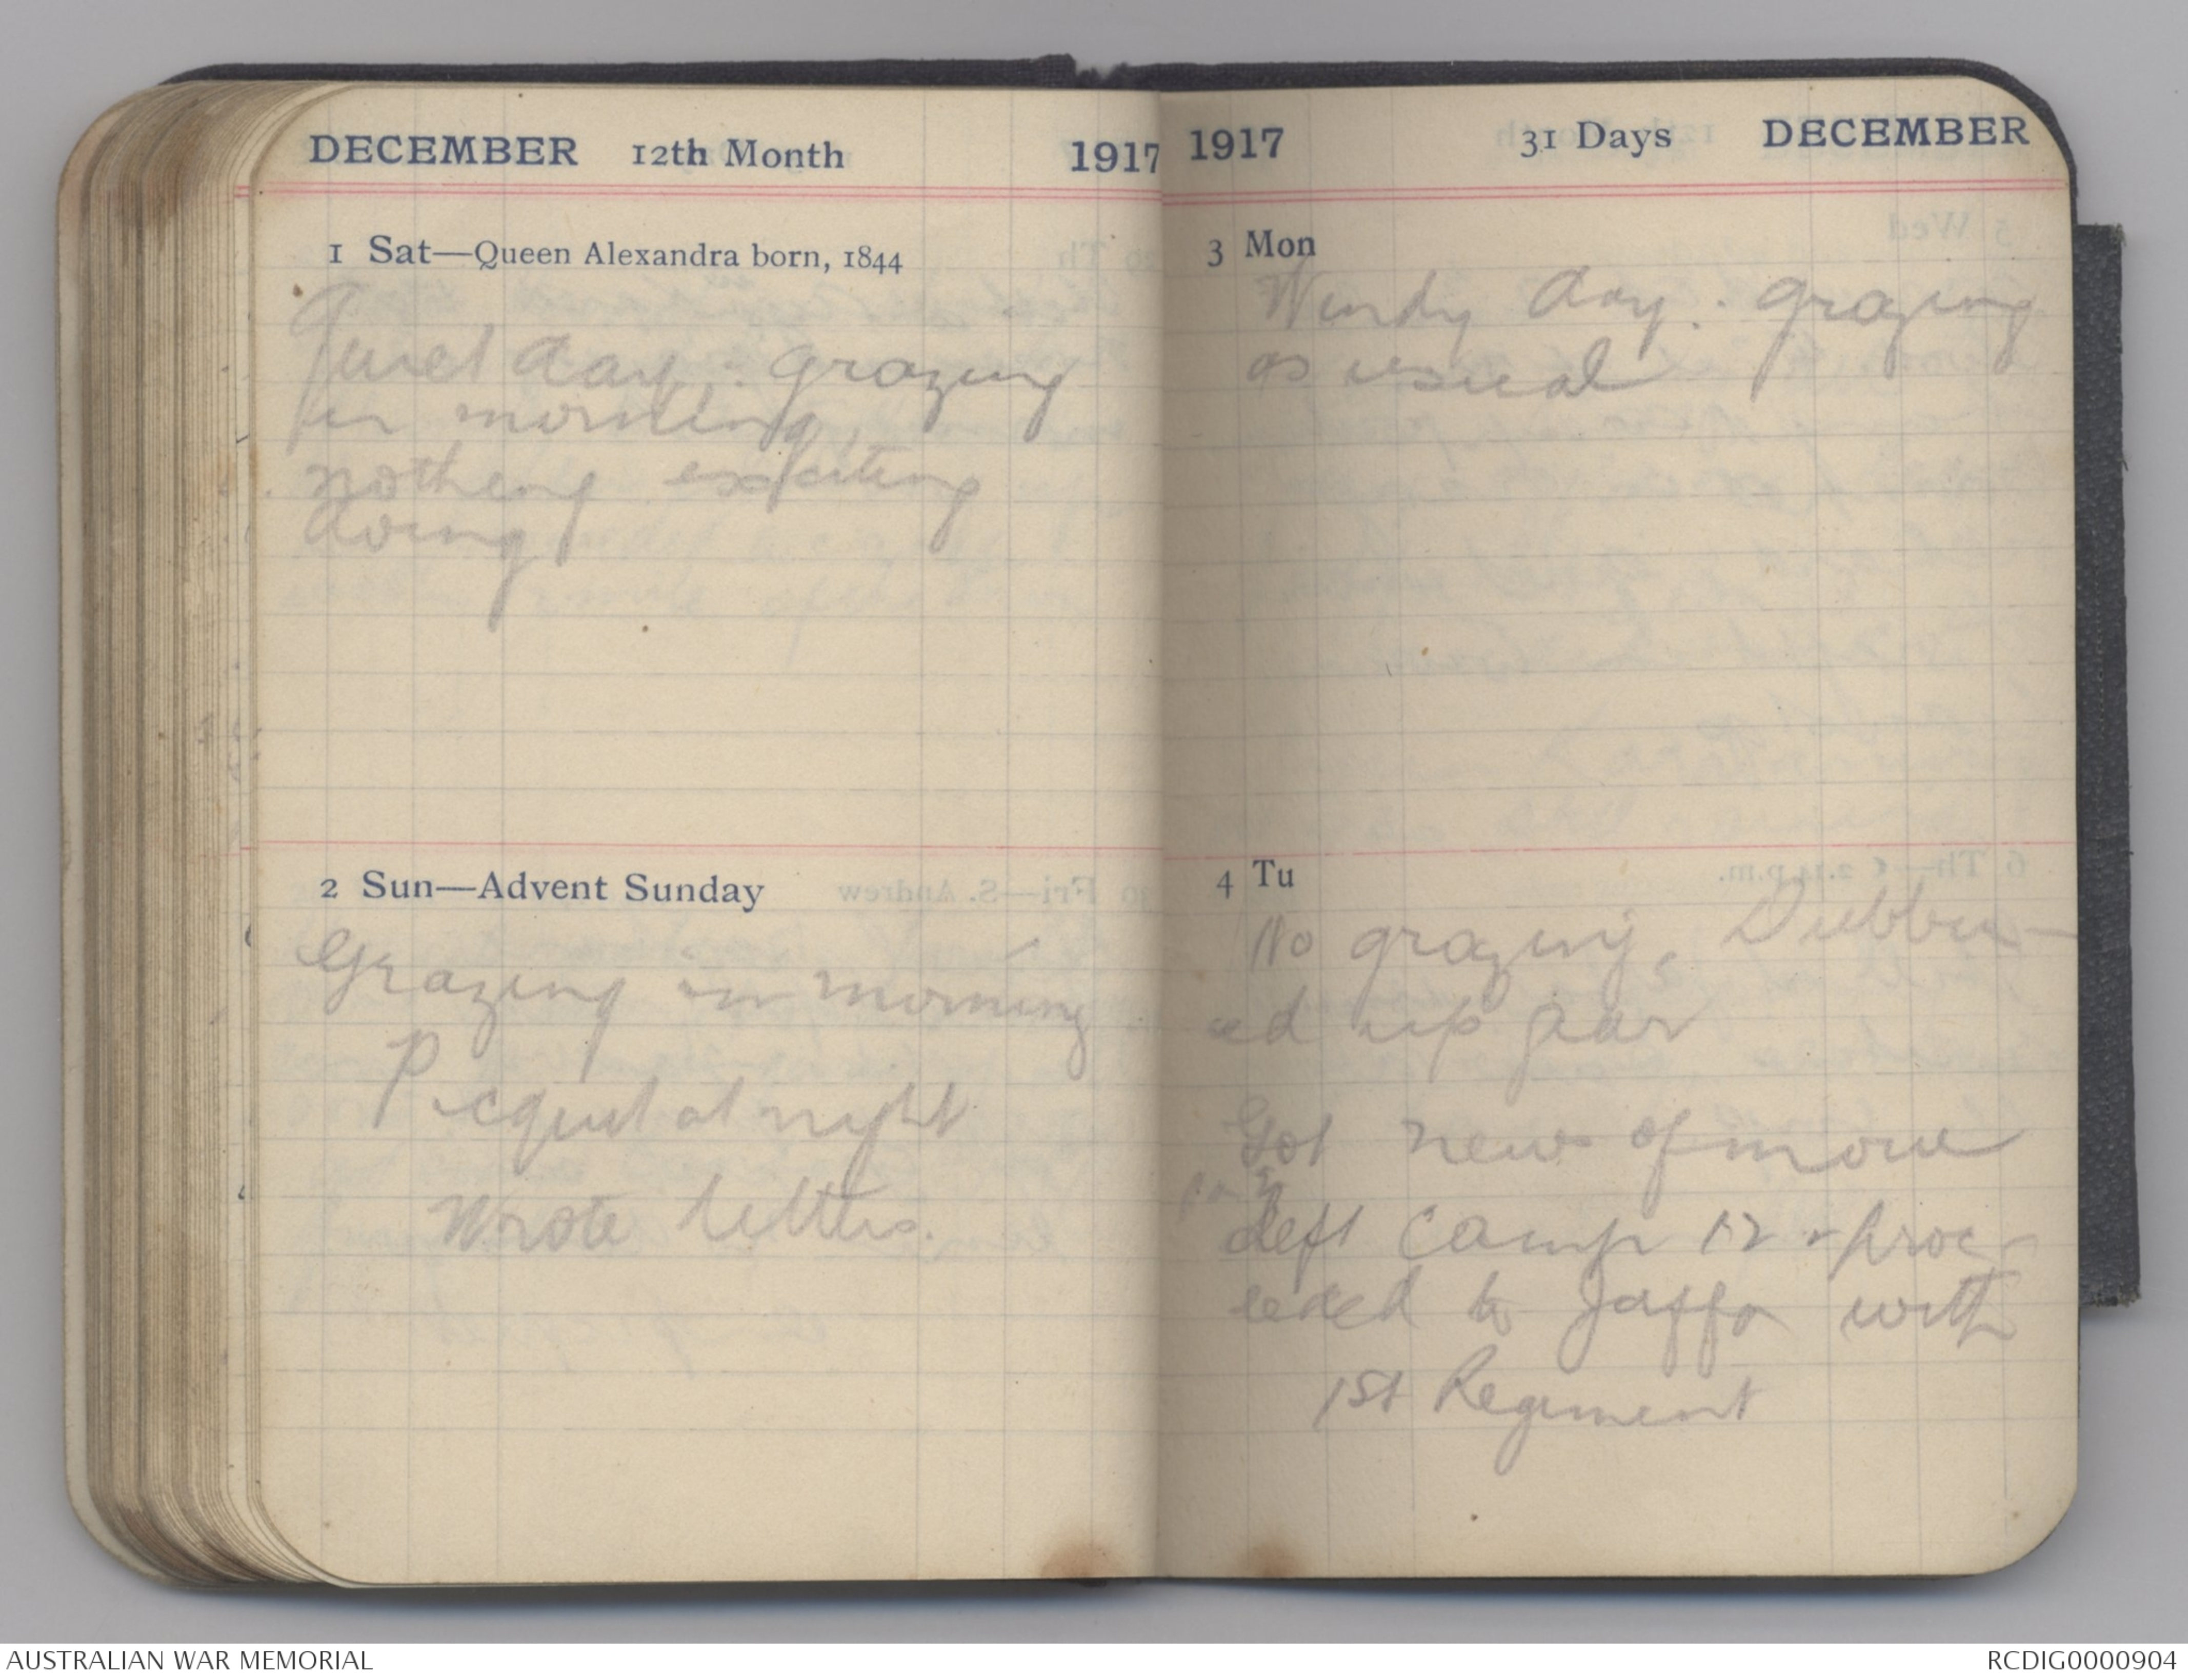 DECEMBER 12th Month 1917
1 Sat—Queen Alexandra born, 1844
Quiet day. grazing
in morning,
nothing exciting
doing
2 Sun—Advent Sunday
Grazing in morning
Picquet at night
Wrote letters.
1917 31 Days DECEMBER
3 Mon
Windy day. grazing
as usual
4 Tu
No grazing, Dubbin-
ed up gear
Got news of move
left camp 12 & proc-
eeded to Jaffa with
1st Regiment
AUSTRALIAN WAR MEMORIAL
RCDIG0000904